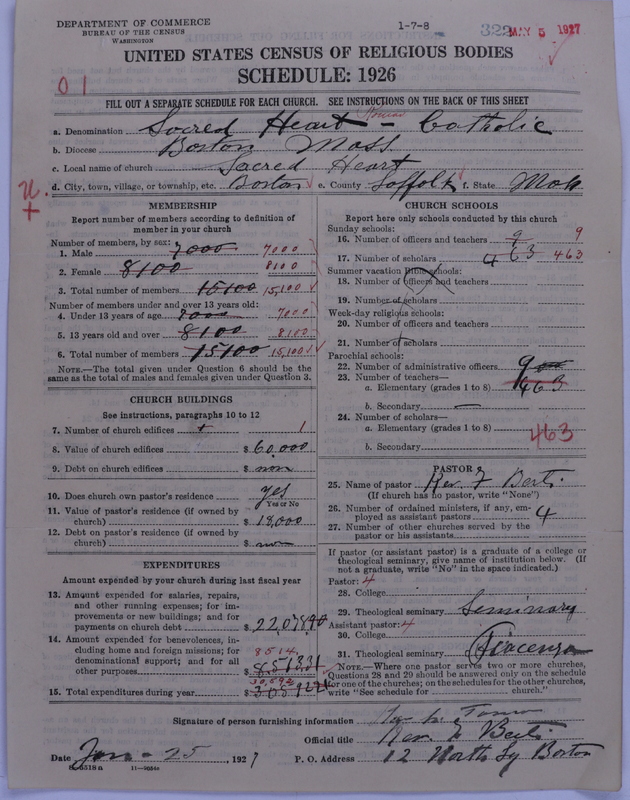 DEPARTMENT OF COMMERCE
BUREAU OF THE CENSUS
WASHINGTON
1-7-8
322 MAY 5 1927
UNITED STATES CENSUS OF RELIGIOUS BODIES
SCHEDULE: 1926
0 1
FILL OUT A SEPARATE SCHEDULE FOR EACH CHURCH. SEE INSTRUCTIONS ON THE BACK OF THIS SHEET
a. Denomination Sacred Heart - Roman Catholic
b. Diocese Boston Mass
c. Local name of church Sacred Heart
d. City, town, village, or township, etc. Boston e. County Suffolk f. State Mass
MEMBERSHIP
Report number of members according to definition of
member in your church
Number of members, by sex:
1. Male 7000 7000
2. Female 8100 8100
3. Total number of members 15100 15,100
Number of members under and over 13 years old:
4. Under 13 years of age 7000 7000
5. 13 years old and over 8100 8100
6. Total number of members 15100 15,100
NOTE.—The total given under Question 6 should be the
same as the total of males and females given under Question 3.
CHURCH BUILDINGS
See instructions, paragraphs 10 to 12
7. Number of church edifices 1
8. Value of church edifices $ 60,000
9. Debt on church edifices $ non
10. Does church own pastor's residence yes
Yes or No
11. Value of pastor's residence (if owned by
church) $ 18,000
12. Debt on pastor's residence (if owned by
church) $ non
EXPENDITURES
Amount expended by your church during last fiscal year
13. Amount expended for salaries, repairs,
and other running expenses; for im-
provements or new buildings; and for
payments on church debt $ 22,078.90
14. Amount expended for benevolences, in-
cluding home and foreign missions; for
denominational support; and for all
other purposes 8514. $ 8,513.31
15. Total expenditures during year 30,592 $
CHURCH SCHOOLS
Report here only schools conducted by this church
Sunday schools:
16. Number of officers and teachers 9 9
17. Number of scholars 463 463
Summer vacation Bible schools:
18. Number of officers and teachers
19. Number of scholars
Week-day religious schools:
20. Number of officers and teachers
21. Number of scholars
Parochial schools:
22. Number of administrative officers 9
23. Number of teachers—
a. Elementary (grades 1 to 8) 463
b. Secondary —
24. Number of scholars—
a. Elementary (grades 1 to 8) 463
b. Secondary
PASTOR
25. Name of pastor Rev. F Berti
(If church has no pastor, write "None")
26. Number of ordained ministers, if any, em-
ployed as assistant pastors 4
27. Number of other churches served by the
pastor or his assistants
If pastor (or assistant pastor) is a graduate of a college or
theological seminary, give name of institution below. (If
not a graduate, write "No" in the space indicated.)
Pastor: 4
28. College
29. Theological seminary Seminary
Assistant pastor: 4
30. College
31. Theological seminary Piacenza
NOTE.—Where one pastor serves two or more churches,
Questions 28 and 29 should be answered only on the schedule
for one of the churches; on the schedules for the other churches,
write "See schedule for church."
Signature of person furnishing information
Official title Rev. F Berti
Date Jan - 25 1927 P. O. Address 12 North Sq Boston
11—9554